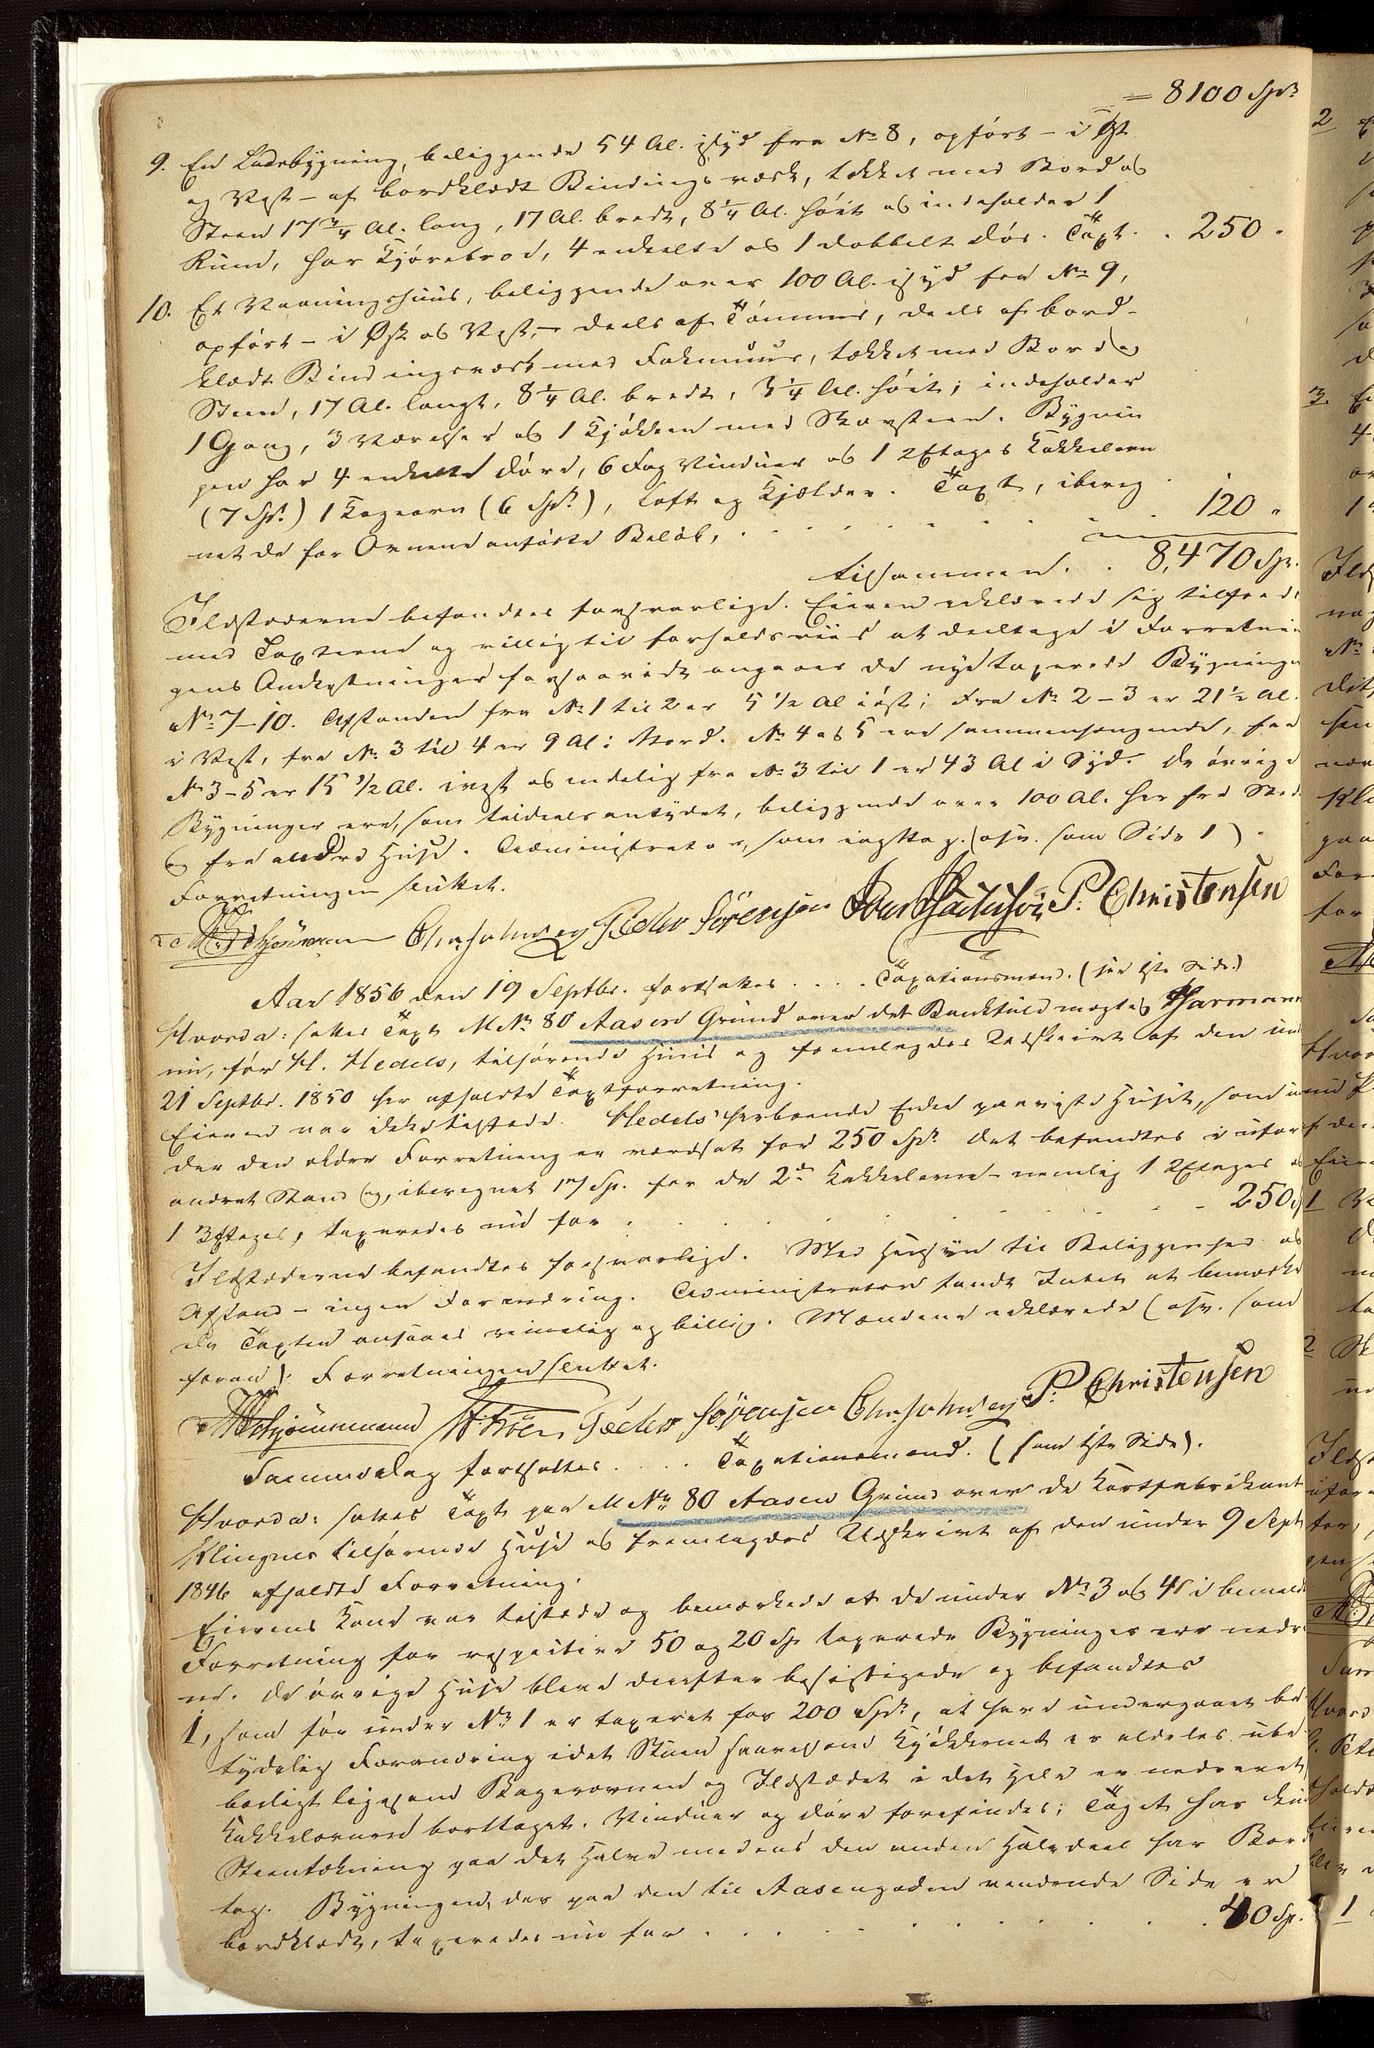 = 8100 Spd.
9. En Ladebygning, beliggende 54 Al. i Syd fra No 8, opført - i Øst
og Vest - af bordklædt Bindingsværk, tækket med Bord og
Steen 17 3/4 Al. lang, 17 Al. bredt, 8 1/4 Al. høit og indeholder 1
Rum, har Kjørebroe, 4 enkelte og 1 dobbelt Dør. Taxt. . 250 "
10. Et Vaaningshuus, beliggende over 100 Al. i Syd fra No 9,
opført - i Øst og Vest, - deels af Tømmer, deels af bord-
klædt Bindingsværk med Fakmuur, tækket med Bord og
Steen, 17 Al. langt, 8 1/4 Al. bredt, 3 1/4 Al. høit; indeholder
1 Gang, 3 Værelser og 1 Kjøkken med Skorsteen. Bygnin
gen har 4 enkelte Døre, 6 Fag Vinduer og 1 2Etages Kakkelovn
(7 Spd.) 1 Kogeovn (6 Spd.), Loft og Kjælder. Taxt, ibereg
net de for Ovnene anførte Beløb, . . . . . . 120 "
tilsammen. . 8,470 Sp.
Ildstæderne befandtes forsvarlige. Eieren erklærede sig tilfreds
med Taxterne og villig til forholdsviis at deeltage i Forretnin
gens Omkostninger forsaavidt angaaer de nye taxerede Bygninger
No 7-10. Afstanden fra No 1 til 2 er 5 1/2 Al i Øst; Fra No 2-3 er 21 1/2 Al.
i Vest, fra No 3 til 4 er 9 Al i Nord. No 4 og 5 ere sammenhængende, fra
No 3-5 er 15 1/2 Al. i vest og endelig fra No 3 til 1 er 43 Al i Syd. De øvrige
Bygninger ere, som tildeels antydet, beliggende over 100 Al. her fra Sted
og fra andre Huse. Administrator, som iagttog (osv. som Side 1)
Forretningen sluttet.
Chr Johnsen Peder Sørensen P. Christensen
Aar 1856 den 19 Septbr. fortsattes . . . . Taxationsmænd. (see 1ste Side)
Hvorda: sattes Taxt M No 80 Aasen Grund over det Bankfuldmægtig Harmann
nu, før H. Hedels, tilhørende Huus og fremlagdes Udskrivt af den un
21 Septbr. 1850 her afholdte Taxtforretning.
Eieren var ikke tilstede. Hedels' herboende Enke paaviste Huset, som un
der den ældre Forretning er værdsat for 250 Spd. Det befandtes i ufor
andret Stand og, iberegnet 17 Sp. for de 2de Kakkelovne - nemlig 1 2Etages og
1 3Etages, taxeredes nu for . . . . . . . . 250 Sp
Ildstæderne befandtes forsvarlige. Med Hensyn til Beliggenhed og
Afstand - ingen Forandring. Administrator fandt Intet at bemærke
da Taxten ansaaes rimelig og billig. Mændene erklærede (osv. som
foran). Forretningen sluttet.
Peder Sørensen Chr. Johnsen P. Christensen
Sammedag fortsattes . . . . Taxationsmænd. (som 1ste Side).
Hvorda: sattes Taxt paa M No 80 Aasen Grund over de Kortfabrikant
Klingner tilhørende Huse og fremlagdes Udskrivt af den under 9 Sept
1846 afholdte Forretning.
Eierens Kone var tilstede og bemærkede at de under No 3 og 4 i bemeldte
Forretning for respective 50 og 20 Sp taxerede Bygninger ere nedrev
ne. De øvrige Huse bleve derefter besigtigede og befandtes
1, som før under No 1 er taxeret for 200 Spd., at have undergaaet be
tydelig Forandring idet Stuen saavelsom Kjøkkenet er aldeles ube
boeligt ligesom Bagerovnen og Ildstædet i det Hele er nedrevet,
Kakkelovnene borttaget. Vinduer og Døre forefindes; Taget har kun
Steentækning paa det Halve medens den anden Halvdeel har Bord
tag. Bygningen, der paa den til Aasengaden vendende Side er
bordklædt, taxeredes nu for . . . . . . . . 40 Sp.